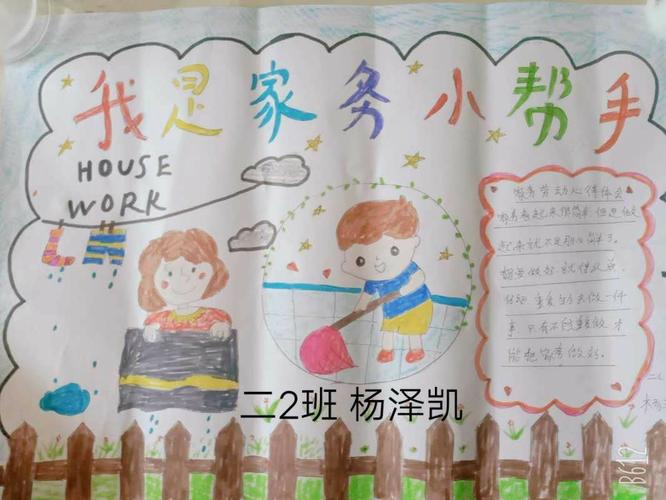 我是家务小帮手
HOUSE
WORK
家务劳动心得体会
家务看起来很简单 但是做
起来就不是那么简单了。
想要做好 就得认真
仔细 重复的去做一件
事,只有不断重复做才
能把家务做好。
二2班 杨泽凯
B612